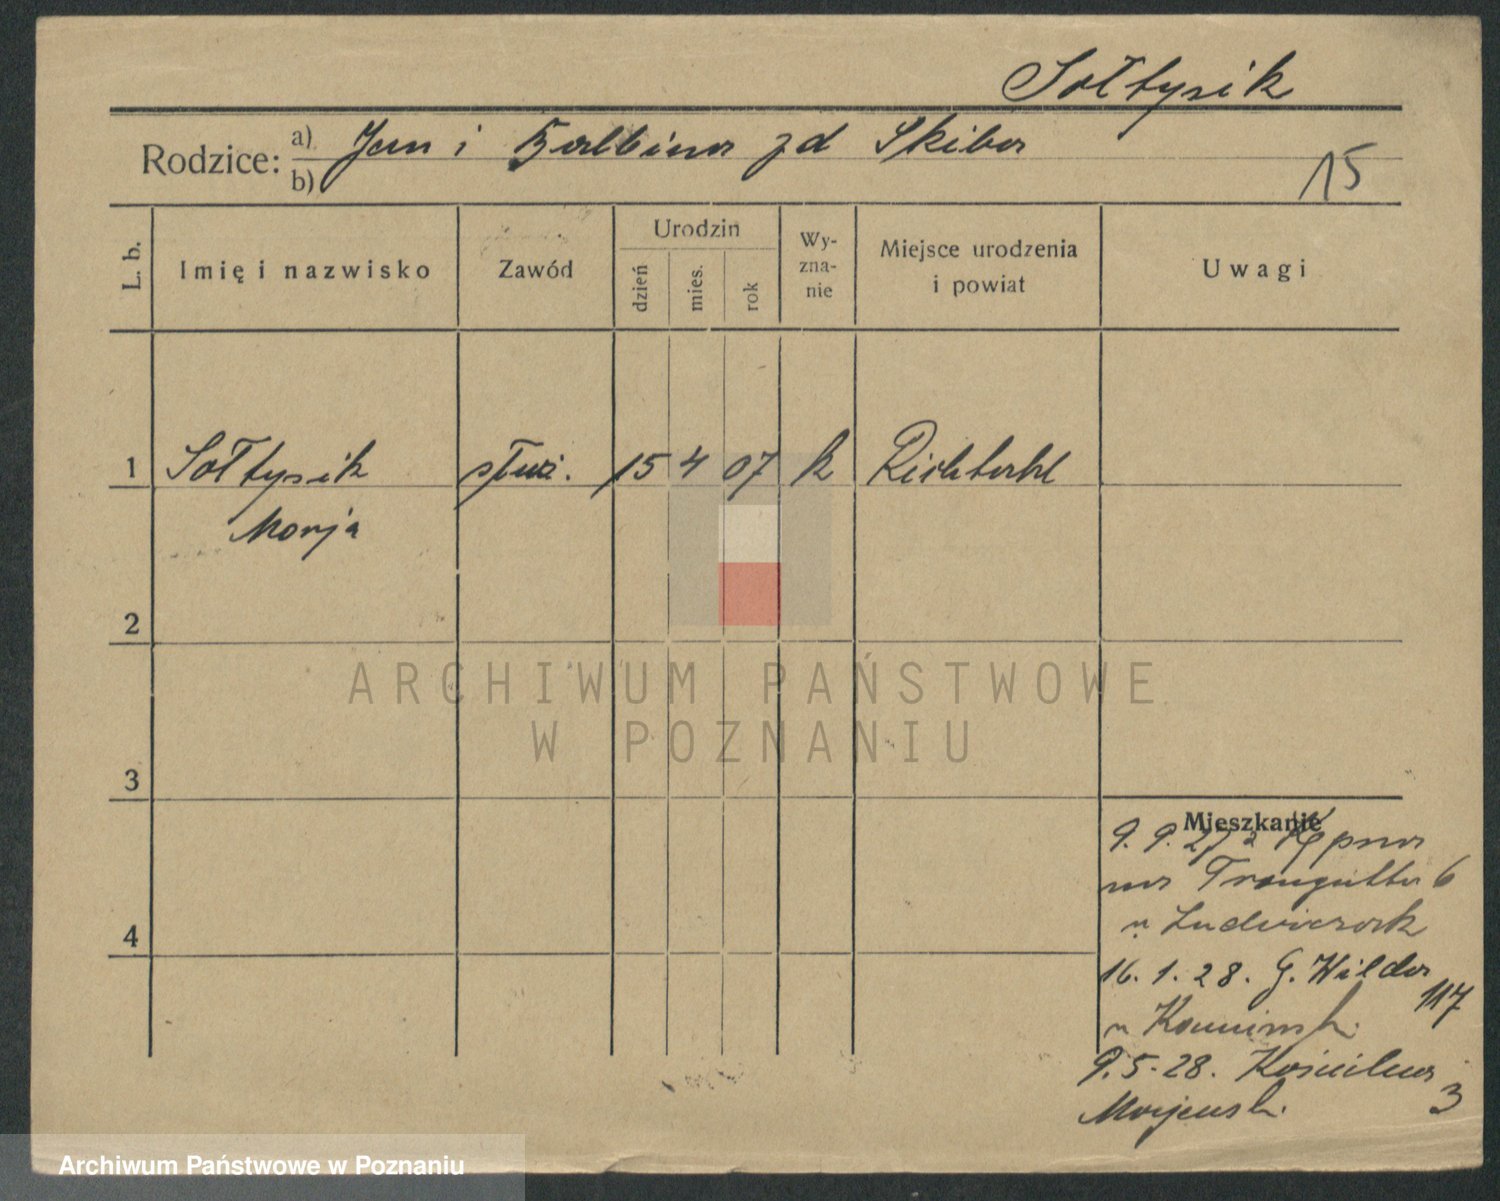 Sołtysik
Rodzice: a) Jan i Balbina zd Skiba
b)
15
L. b.
Imię i nazwisko
Zawód
Urodzin
dzień
mies.
rok
Wy-
zna-
nie
Miejsce urodzenia
i powiat
Uwagi
1 Sołtysik służ. 15 4 07 k
Marja
2
3
4
Mieszkanie
9. 9. 27 z Kępna
na Traugutta 6
u Ludwiczak
16. 1. 28. G. Wilda
117
u
9. 5. 28. Kościelna
3
ARCHIWUM PAŃSTWOWE
W POZNANIU
Archiwum Państwowe w Poznaniu